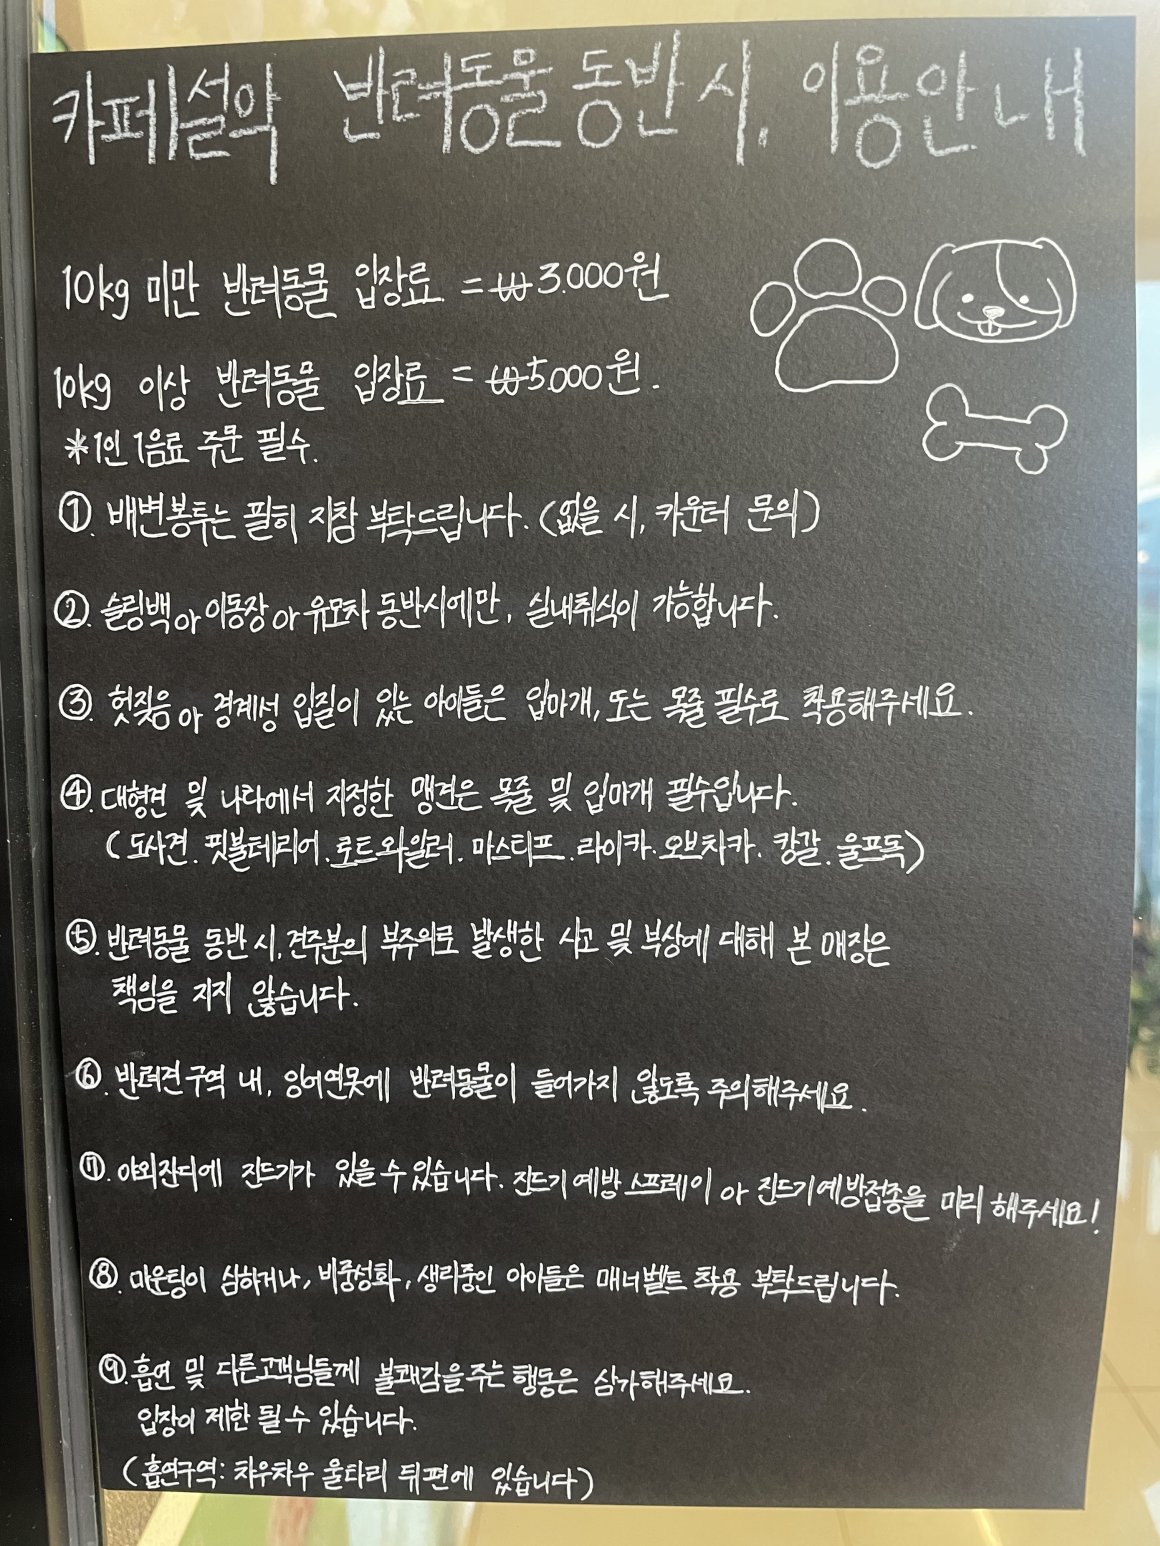 카페설악 반려동물 동반 시, 이용안내
10kg 미만 반려동물 입장료 = ₩3.000원
10kg 이상 반려동물 입장료 = ₩5.000원.
*1인 1음료 주문 필수.
①. 배변봉투는 필히 지참 부탁드립니다. (없을 시, 카운터 문의)
②. 슬링백 or 이동장 or 유모차 동반시에만, 실내취식이 가능합니다.
③. 헛짖음 or 경계성 입질이 있는 아이들은 입마개, 또는 목줄 필수로 착용해주세요.
④. 대형견 및 나라에서 지정한 맹견은 목줄 및 입마개 필수입니다.
(도사견. 핏불테리어. 로트와일러. 마스티프. 라이카. 오브차카. 캉갈. 울프독)
⑤. 반려동물 동반 시, 견주분의 부주의로 발생한 사고 및 부상에 대해 본 매장은
책임을 지지 않습니다.
⑥. 반려견 구역 내, 잉어연못에 반려동물이 들어가지 않도록 주의해주세요.
⑦. 야외잔디에 진드기가 있을 수 있습니다. 진드기 예방 스프레이 or 진드기예방접종을 미리 해주세요!
⑧. 마운팅이 심하거나, 비중성화, 생리중인 아이들은 매너벨트 착용 부탁드립니다.
⑨. 흡연 및 다른고객님들께 불쾌감을 주는 행동은 삼가해주세요.
입장이 제한 될 수 있습니다.
(흡연구역: 차우차우 울타리 뒤편에 있습니다)